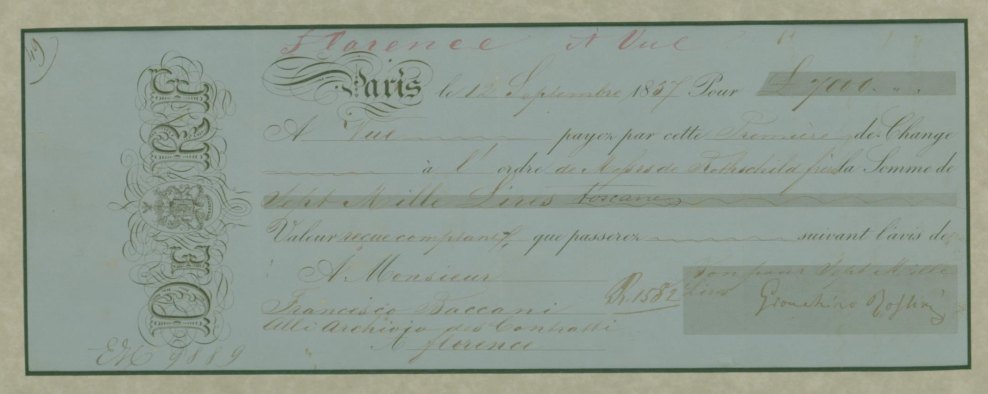 49
Florence A Vue
Paris le 12 Septembre 1857 Pour £ 7000
A Vue payez par cette Première de Change
à l'ordre de Mssrs de Rothschild frères la Somme de
Sept Mille Lires toscanes
Valeur reçue comptant que passerez suivant l'avis de
A Monsieur Bon pour Sept Mille
Francisco Baccani R 1582 Lires
alli Archivio dei Contratti Giovachino Rossini
A florence
EM 9889